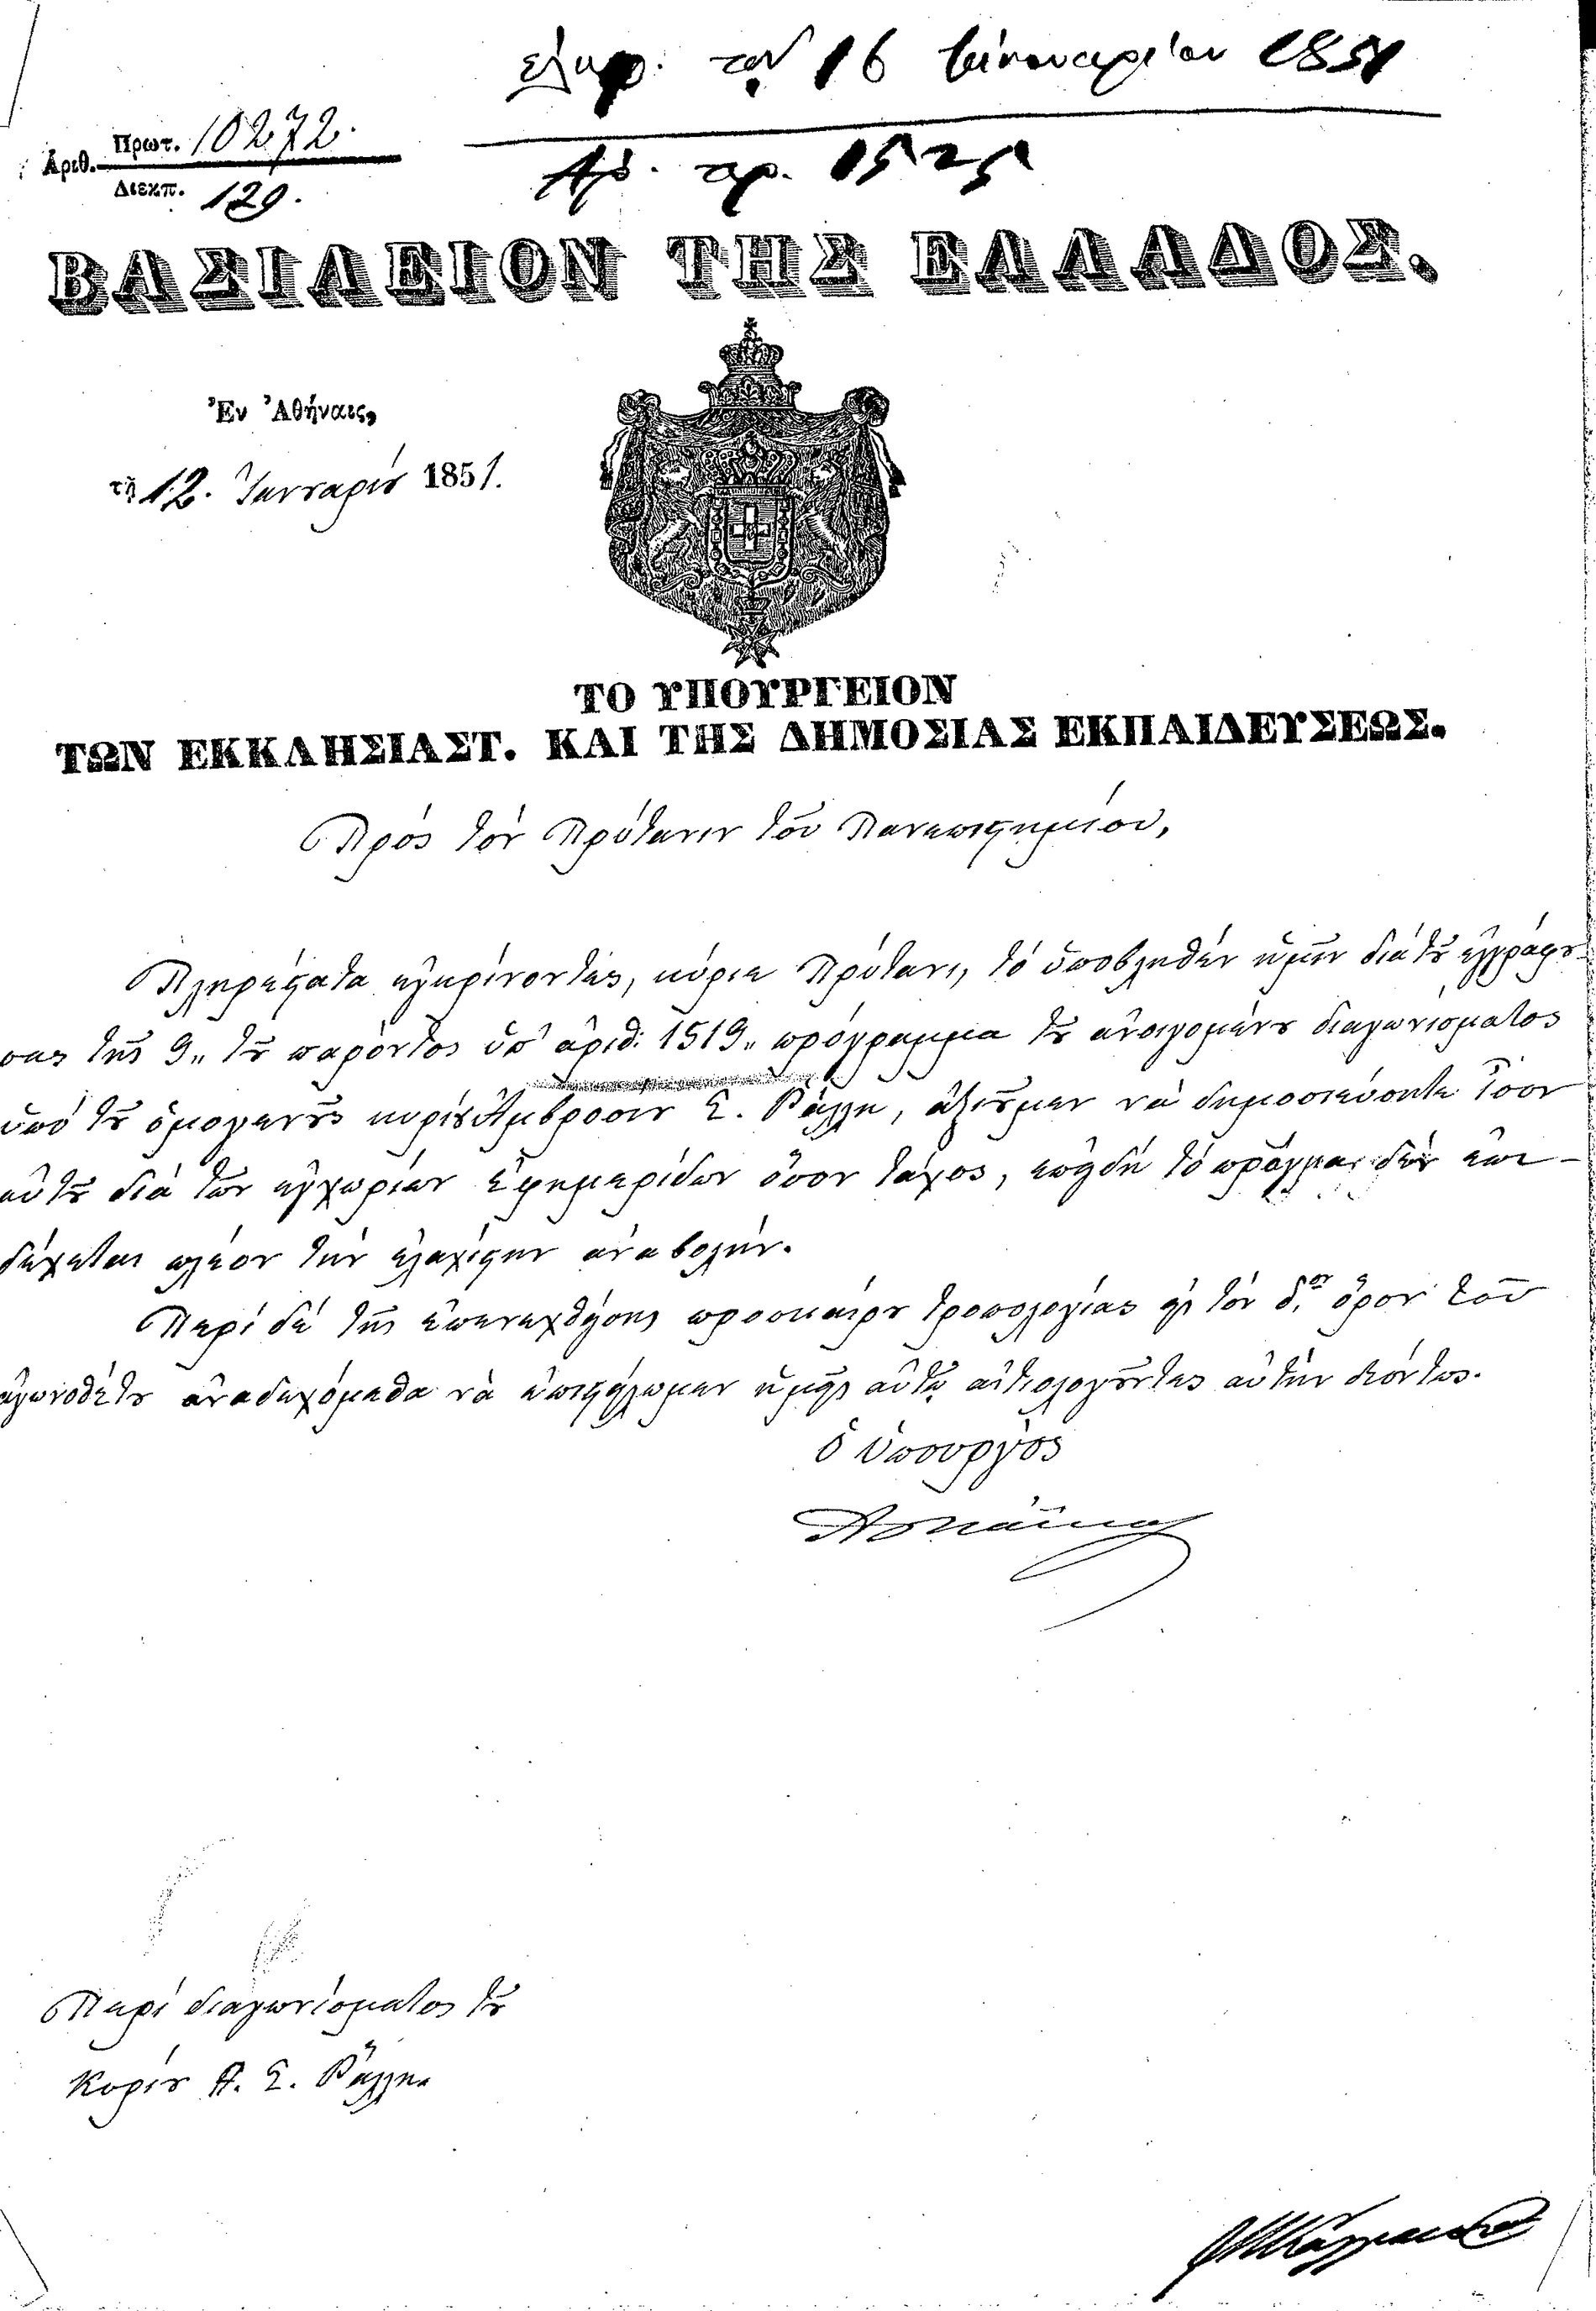 ἐλήφ. τῇ 16 Ἰανουαρίου 1851
Ἀρ. πρ. 1525
Ἀριθ. Πρωτ. 10272.
Διεκπ. 129.
ΒΑΣΙΛΕΙΟΝ ΤΗΣ ΕΛΛΑΔΟΣ.
Ἐν Ἀθήναις,
τῇ 12. Ἰανουαρίου 1851.
ΤΟ ΥΠΟΥΡΓΕΙΟΝ
ΤΩΝ ΕΚΚΛΗΣΙΑΣΤ. ΚΑΙ ΤΗΣ ΔΗΜΟΣΙΑΣ ΕΚΠΑΙΔΕΥΣΕΩΣ.
Πρὸς τὸν Πρύτανιν τοῦ Πανεπιστημείου,
Πληρέστατα ἐγκρίνοντες, κύριε Πρύτανι, τὸ ὑποβληθὲν ἡμῖν διὰ τοῦ ἐγγράφου
σας τῆς 9 τοῦ παρόντος ὑπ' ἀριθ. 1519 πρόγραμμα τοῦ ἀνοιγομένου διαγωνίσματος
ὑπὸ τοῦ ὁμογενοῦς κυρίου Ἀμβροσίου Σ. Ῥάλλη, ἀξιοῦμεν νὰ δημοσιεύσητε ἶσον
αὐτοῦ διὰ τῶν ἐγχωρίων ἐφημερίδων ὅσον τάχος, ἐπειδὴ τὸ πρᾶγμα δὲν ἐπι-
δέχεται πλέον τὴν ἐλαχίστην ἀναβολήν.
Περὶ δὲ τῆς ἐπενεχθείσης προσκαίρου τροπολογίας εἰς τὸν δ.ον ὅρον τοῦ
ἀγωνοθέτου ἀναδεχόμεθα νὰ ἐπιστείλωμεν ἡμεῖς αὐτῷ αἰτιολογοῦντες αὐτὴν δεόντως.
ὁ ὑπουργὸς
Περὶ διαγωνίσματος τοῦ
Κυρίου Α. Σ. Ῥάλλη.